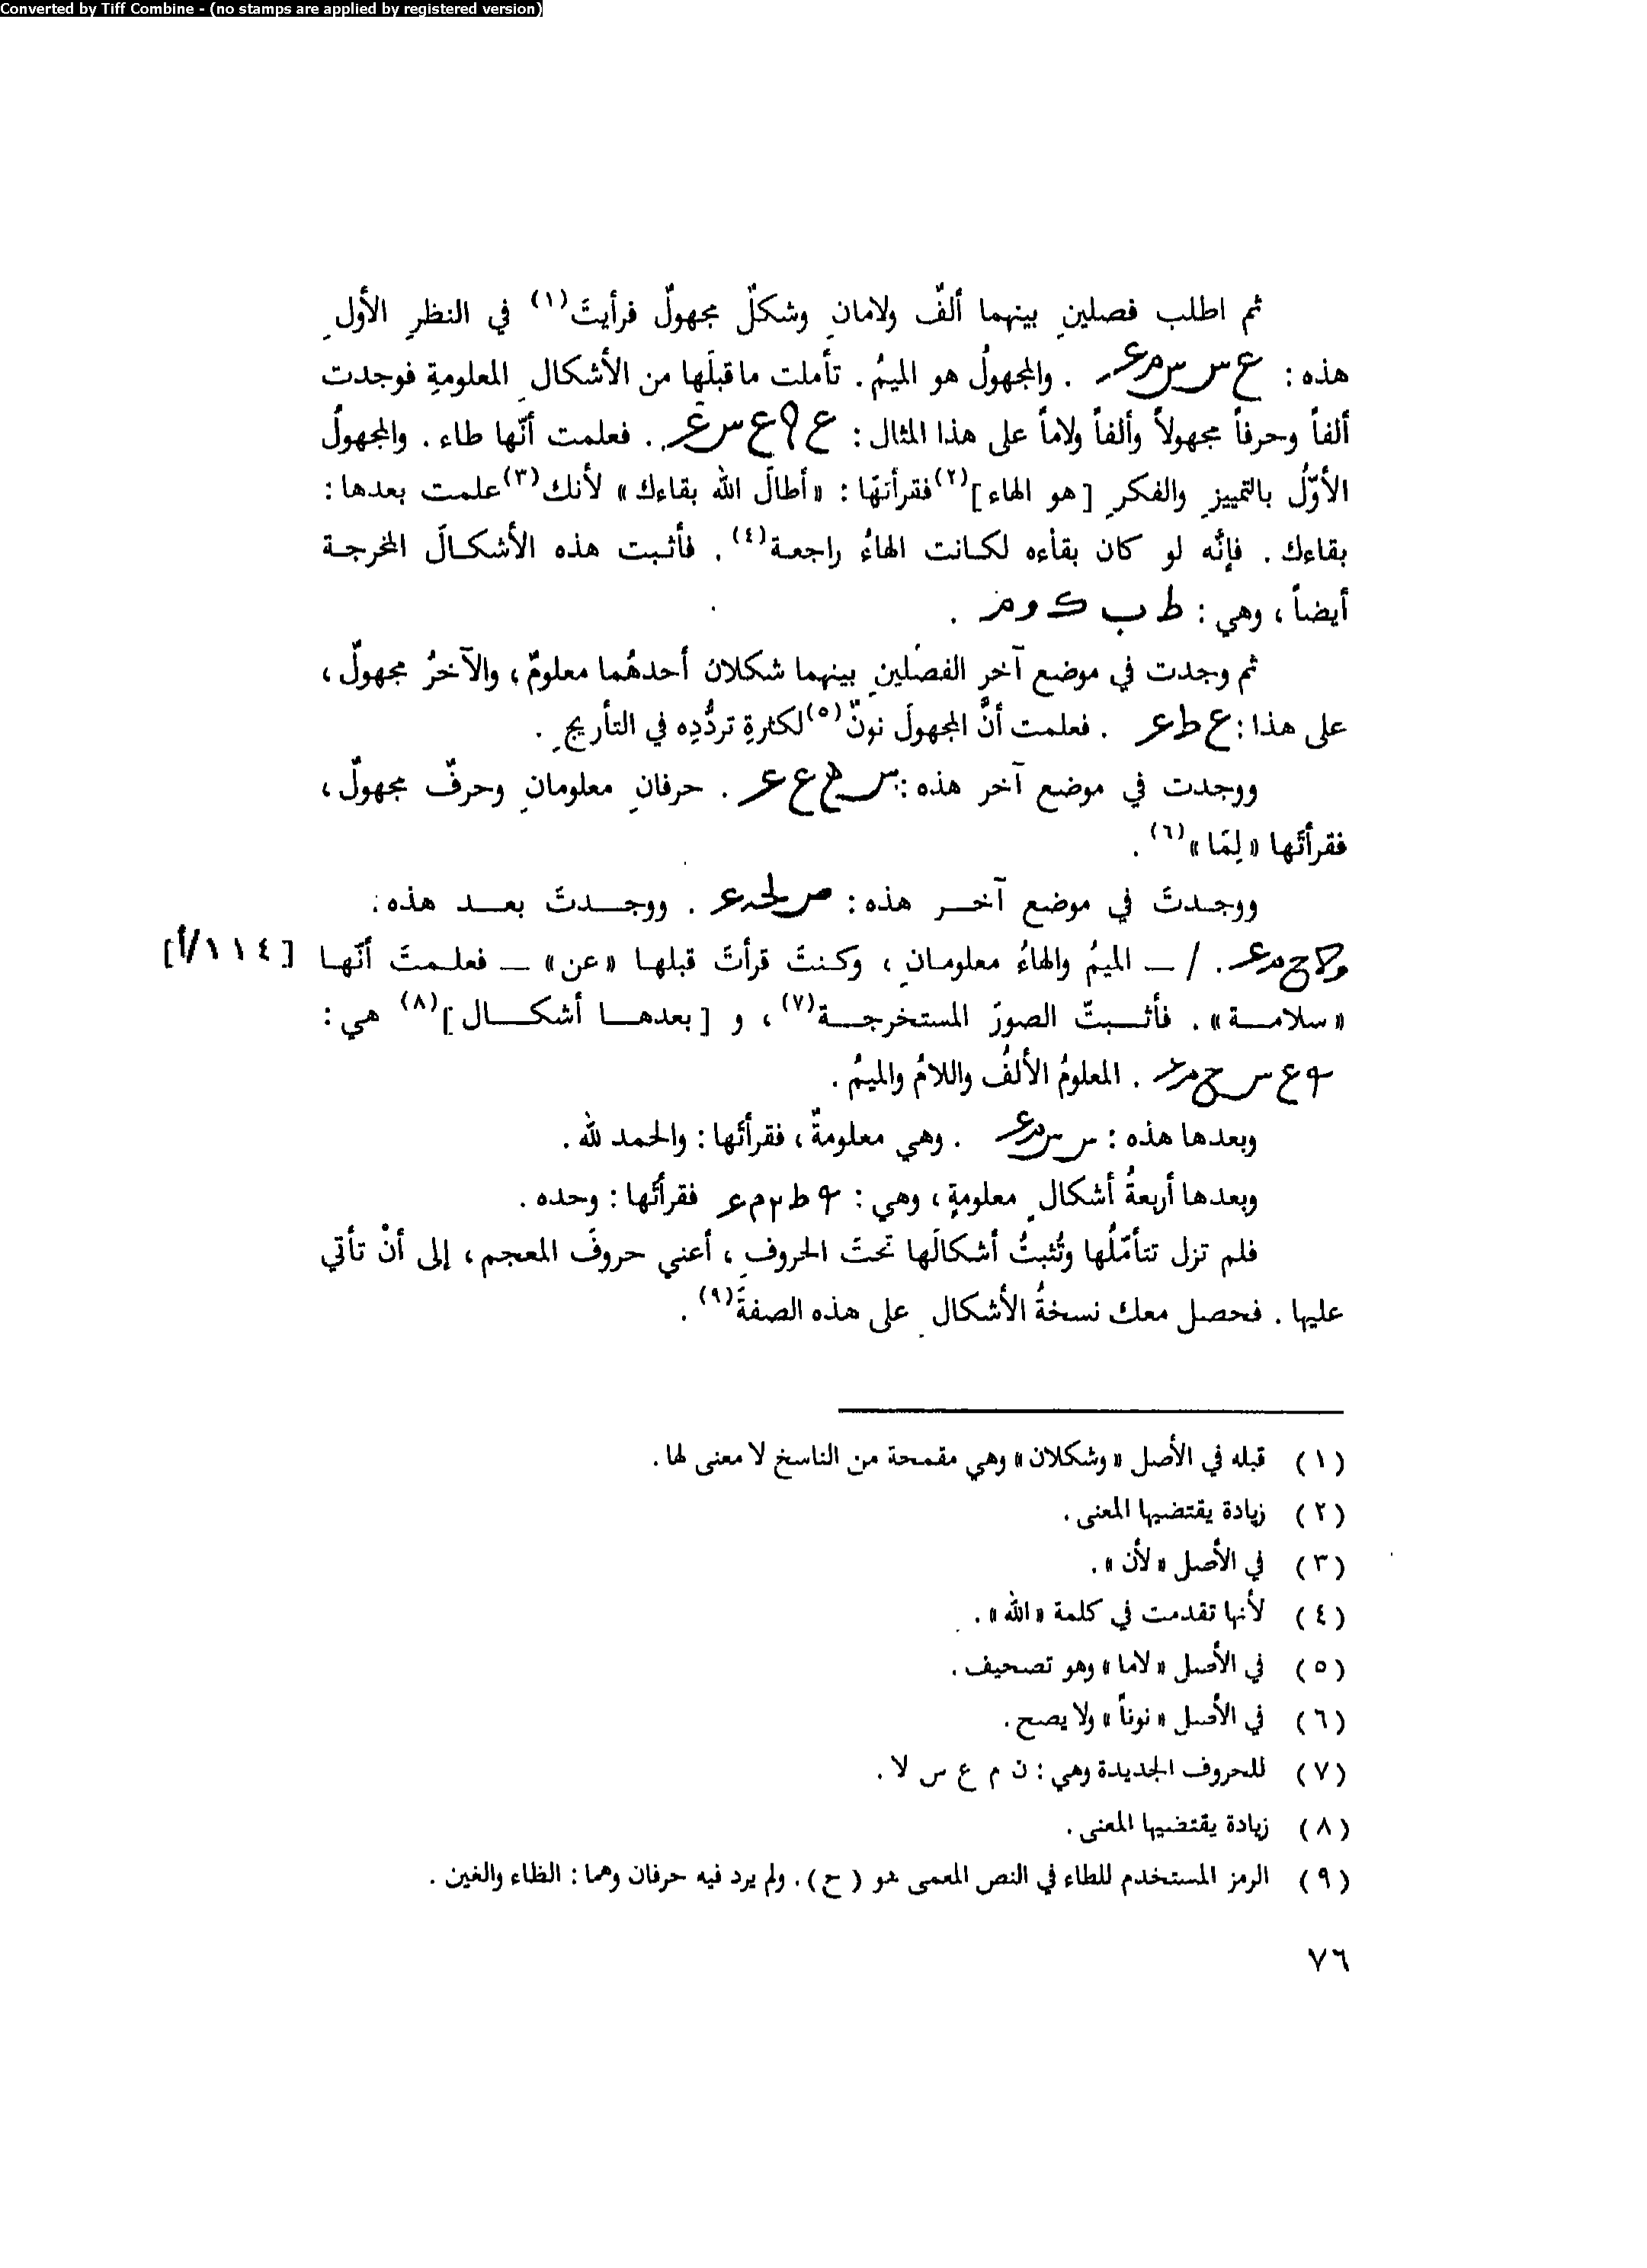 Converted by Tiff Combine - (no stamps are applied by registered version)
ثم اطلب فصلينِ بينهما ألفٌ ولامانِ وشكلٌ مجهولٌ فرأيتَ(١) في النظرِ الأولِ
هذه : . والمجهولُ هو الميمُ . تأملت ماقبلَها من الأشكالِ المعلومةِ فوجدت
ألفاً وحرفاً مجهولاً وألفاً ولاماً على هذا المثال : . فعلمت أنّها طاء . والمجهولُ
الأوّلُ بالتمييزِ والفكرِ [ هو الهاء ](٢) فقرأتها : « أطالَ الله بقاءك » لأنك(٣) علمت بعدها :
بقاءك . فإنّه لو كان بقاءه لكانت الهاءُ راجعة(٤) . فأثبت هذه الأشكالَ المخرجة
أيضاً ، وهي : ط ب ك و م .
ثم وجدت في موضع آخر الفصلينِ بينهما شكلان أحدهُما معلومٌ ، والآخرُ مجهولٌ ،
على هذا : ع ط ع . فعلمت أنَّ المجهولَ نونٌ(٥) لكثرةِ تردُّدِه في التأريخِ .
ووجدت في موضع آخر هذه : . حرفانِ معلومانِ وحرفٌ مجهولٌ ،
فقرأتَها « لِمَا »(٦) .
ووجدتَ في موضع آخر هذه : . ووجدتَ بعد هذه :
. / ــ الميمُ والهاءُ معلومانِ ، وكنتَ قرأتَ قبلها « عن » ــ فعلمتَ أنّها [ ١١٤/أ]
« سلامة » . فأثبتّ الصورَ المستخرجة(٧) ، و [ بعدها أشكال ](٨) هي :
. المعلومُ الألفُ واللامُ والميمُ .
وبعدها هذه : . وهي معلومةٌ ، فقرأتَها : والحمد لله .
وبعدها أربعةُ أشكالٍ معلومةٍ ، وهي : فقرأتَها : وحده .
فلم تزل تتأمّلُها وتُثبتُ أشكالَها تحتَ الحروفِ ، أعني حروفَ المعجم ، إلى أنْ تأتي
عليها . فحصل معك نسخةُ الأشكالِ على هذه الصفةَ(٩) .
(١) قبله في الأصل « وشكلان » وهي مقمحة من الناسخ لا معنى لها .
(٢) زيادة يقتضيها المعنى .
(٣) في الأصل « لأن » .
(٤) لأنها تقدمت في كلمة « الله » .
(٥) في الأصل « لاما » وهو تصحيف .
(٦) في الأصل « نوناً » ولا يصح .
(٧) للحروف الجديدة وهي : ن م ع س لا .
(٨) زيادة يقتضيها المعنى .
(٩) الرمز المستخدم للطاء في النص المعمى هو ( ح ) . ولم يرد فيه حرفان وهما : الظاء والغين .
٧٦